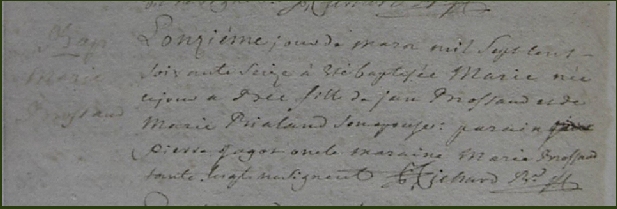 Bap
Marie
Brossaud
L'onziéme jour de mars mil Sept cent
soixante Seize à été baptisée Marie née
cejour a Drée fille de jan Brossaud et de
Marie Rialand Son epouse: parain
pierre gagot oncle maraine Marie Brossaud
tante Richard